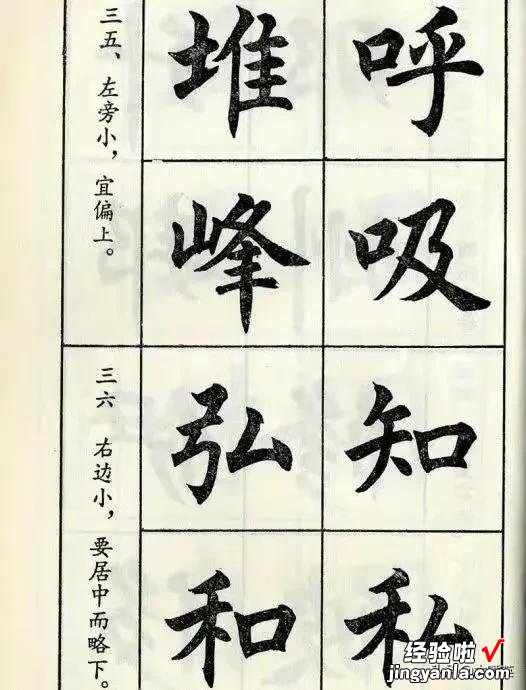 三五、左旁小，宜偏上。
堆呼
峰吸
三六 右边小，要居中而略下。
弘知
和私
经验啦√
jingyanla.com